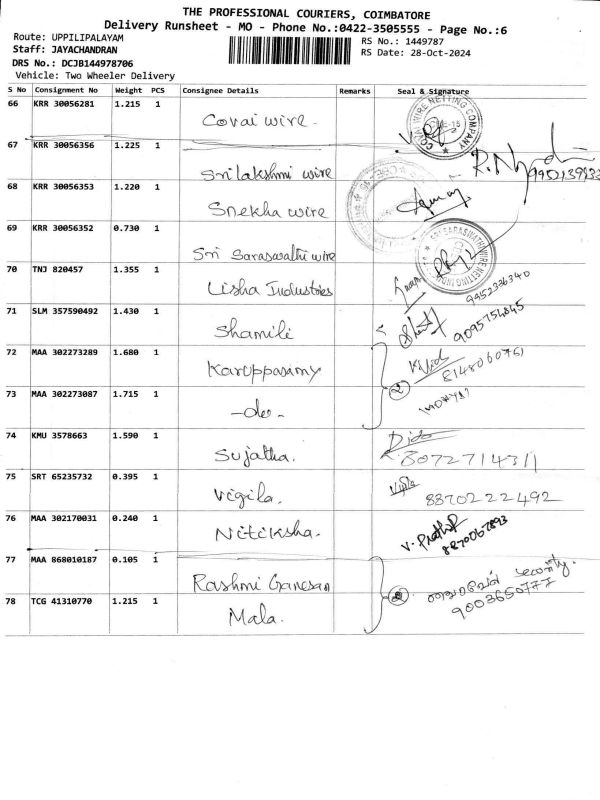 THE PROFESSIONAL COURIERS, COIMBATORE
Delivery Runsheet - MO - Phone No.:0422-3505555 - Page No.:6
Route: UPPILIPALAYAM
RS No.: 1449787
Staff: JAYACHANDRAN
RS Date: 28-Oct-2024
DRS No.: DCJB144978706
Vehicle: Two Wheeler Delivery
S No Consignment No Weight PCS Consignee Details Remarks Seal & Signature
66 KRR 30056281 1.215 1 Covai wire. COVAI WIRE NETTING COMPANY
67 KRR 30056356 1.225 1 Srilakshmi wire
68 KRR 30056353 1.220 1 Snekha wire
69 KRR 30056352 0.730 1 Sri Sarasasathi wire
70 TNJ 820457 1.355 1 Lisha Industries 9952336340
71 SLM 357590492 1.430 1 Shamili 9095754845
72 MAA 302273289 1.680 1 Karuppasamy
73 MAA 302273087 1.715 1 -do- 2
74 KMU 3578663 1.590 1 Sujatha. 8072714311
75 SRT 65235732 0.395 1 Vigila. 8870222492
76 MAA 302170031 0.240 1 Nitiksha. 8870067893
77 MAA 868010187 0.105 1 Rashmi Ganesan security.
78 TCG 41310770 1.215 1 Mala. 9003650777